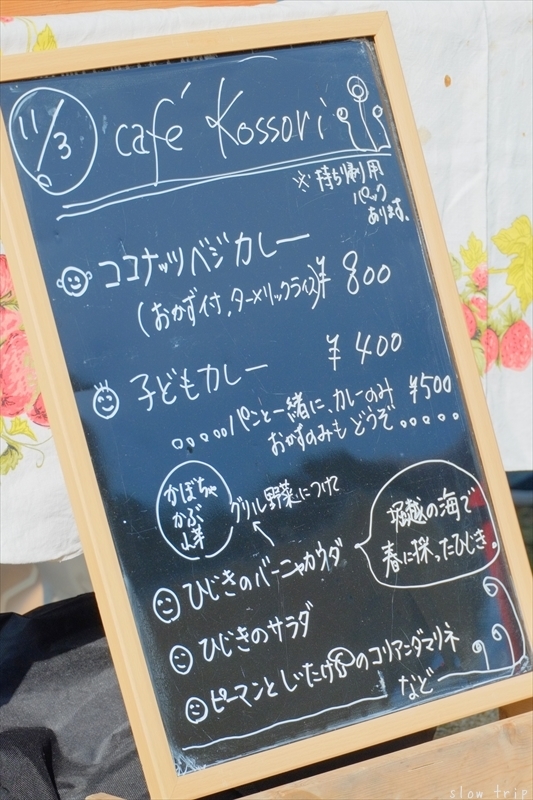 11/3
café Kossori
※持ち帰り用
パック
あります。
ココナッツベジカレー
(おかず付、ターメリックライス) ¥800
子どもカレー ¥400
。。。。。パンと一緒に、カレーのみ ¥500
おかずのみも どうぞ。。。。。
かぼちゃ
かぶ
山芋
グリル野菜につけて
堀越の海で
春に採ったひじき。
ひじきのバーニャカウダ
ひじきのサラダ
ピーマンとしいたけのコリアンダマリネ
など
slow trip